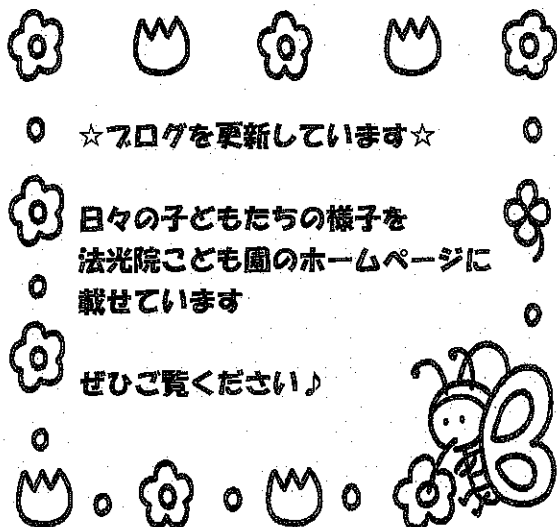 ☆ブログを更新しています☆
日々の子どもたちの様子を
法光院こども園のホームページに
載せています
ぜひご覧ください♪